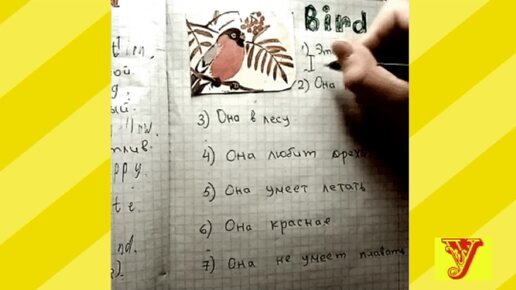 Bird
1) Эт
I
2) Она
3) Она в лесу
4) Она любит орех
5) Она умеет летать
6) Она красная
7) Она не умеет плавать
ой
ый.
тлив.
ppy.
te.
nd.
У